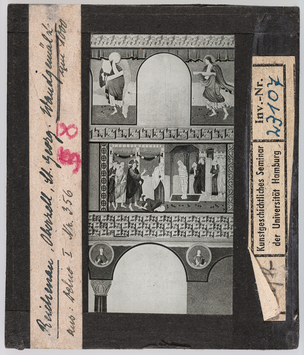 Reichenau Oberzell, St. Georg Wandgemälde
aus: Dehio I Nr. 356
58
Kunstgeschichtliches Seminar
der Universität Hamburg
Inv.-Nr.
23107